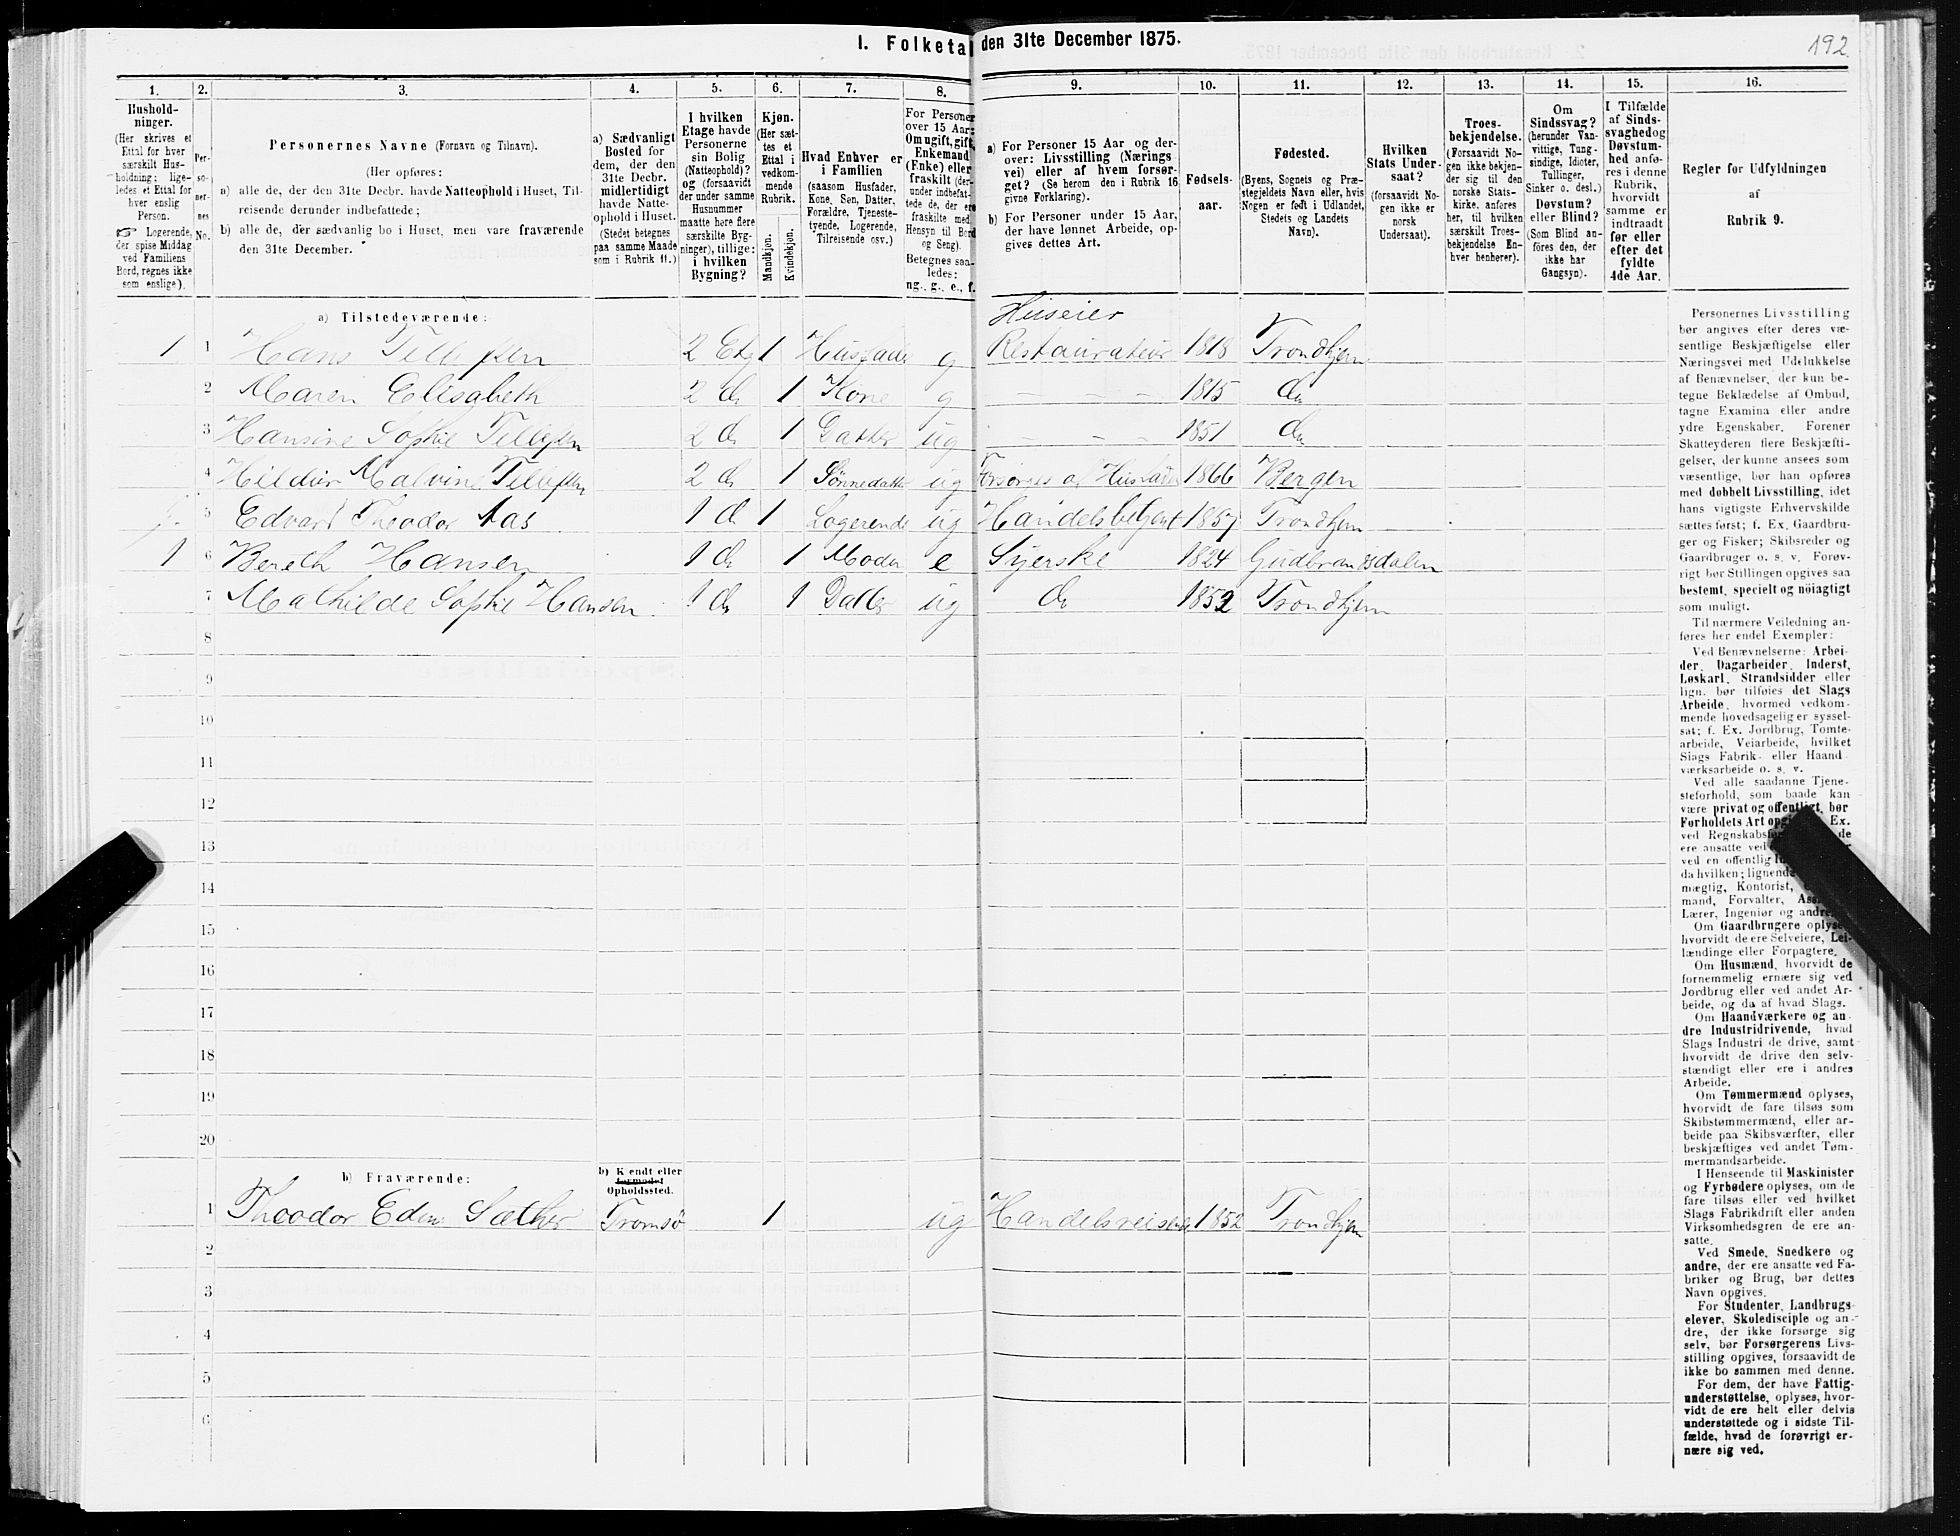 I. Folketal den 31te December 1875.
192
1. 2. 3. 4. 5. 6. 7. 8. 9. 10. 11. 12. 13. 14. 15. 16.
Hushold-
ninger.
(Her skrives et
Ettal for hver
særskilt Hus-
holdning; lige-
ledes et Ettal for
hver enslig
Person.
☞ Logerende,
der spise Middag
ved Familiens
Bord, regnes ikke
som enslige).
Per-
so-
ner-
nes
No.
Personernes Navne (Fornavn og Tilnavn).
(Her opføres:
a) alle de, der den 31te Decbr. havde Natteophold i Huset, Til-
reisende derunder indbefattede;
b) alle de, der sædvanlig bo i Huset, men vare fraværende
den 31te December.
a) Sædvanligt
Bosted for
dem, der den
31te Decbr.
midlertidigt
havde Natte-
ophold i Huset.
(Stedet betegnes
paa samme Maade
som i Rubrik 11.)
I hvilken
Etage havde
Personerne
sin Bolig
(Natteophold)?
og (forsaavidt
der under samme
Husnummer
maatte høre flere
særskilte Byg-
ninger), tillige:
i hvilken
Bygning?
Kjøn.
(Her sæt-
tes et
Ettal i
vedkom-
mende
Rubrik.
Mandkjøn.
Kvindekjøn.
Hvad Enhver er
i Familien
(saasom Husfader,
Kone, Søn, Datter,
Forældre, Tjeneste-
tyende, Logerende,
Tilreisende osv.)
For Personer
over 15 Aar:
Om ugift, gift,
Enkemand
(Enke) eller
fraskilt (der-
under indbefat-
tede de, der ere
fraskilte med
Hensyn til Bord
og Seng).
Betegnes saa-
ledes:
ug., g., e., f.
a) For Personer 15 Aar og der-
over: Livsstilling (Nærings
vei) eller af hvem forsør-
get? (Se herom den i Rubrik 16
givne Forklaring).
b) For Personer under 15 Aar,
der have lønnet Arbeide, op-
gives dettes Art.
Fødsels-
aar.
Fødested.
(Byens, Sognets og Præ-
stegjeldets Navn eller, hvis
Nogen er født i Udlandet,
Stedets og Landets
Navn).
Hvilken
Stats Under-
saat?
(forsaavidt No-
gen ikke er
norsk
Undersaat).
Troes-
bekjendelse.
(Forsaavidt No-
gen ikke bekjen-
der sig til den
norske Stats-
kirke, anføres
her, til hvilken
særskilt Troes-
bekjendelse En-
hver henhører).
Om
Sindssvag?
(herunder Van-
vittige, Tung-
sindige, Idioter,
Tullinger,
Sinker o. desl.)
Døvstum?
eller Blind?
(Som Blind an-
føres den, der
ikke har
Gangsyn).
I Tilfælde
af Sinds-
svaghedog
Døvstum-
hed anfø-
res i denne
Rubrik,
hvorvidt
samme er
indtraadt
før eller
efter det
fyldte
4de Aar.
Regler for Udfyldningen
af
Rubrik 9.
a) Tilstedeværende:
Huseier
1 1 Hans Tellefsen 2 Etg 1 Husfader g Restaurateur 1818 Trondhjem
2 Maren Elisabeth 2 do 1 Kone g - - - 1815 do
3 Hansine Sophie Tellefsen 2 do 1 Datter ug - - - 1851 do
4 Hildur Malvine Tellefsen 2 do 1 Sønnedatter ug Forsørges af Husfader 1866 Bergen
5 Edvard Theodor Aas 1 do 1 Logerende ug Handelsbetjent 1857 Trondhjem
1 6 Bereth Hansen 1 do 1 Moder e Syerske 1824 Gudbrandsdalen
7 Mathilde Sophie Hansen 1 do 1 Datter ug do 1852 Trondhjem
8
9
10
11
12
13
14
15
16
17
18
19
20
b) Fraværende:
b) Kendt eller
formodet
Opholdssted.
1 Theodor Edw Sæther Tromsø 1 ug Handelsreisende 1852 Trondhjem
2
3
4
5
6
Personernes Livsstilling
bør angives efter deres væ-
sentlige Beskjæftigelse eller
Næringsvei med Udelukkelse
af Benævnelser, der kun be-
tegne Beklædelse af Ombud,
tagne Examina eller andre
ydre Egenskaber. Forener
Skatteyderen flere Beskjæfti-
gelser, der kunne ansees som
væsentlige, bør han opføres
med dobbelt Livsstilling, idet
hans vigtigste Erhvervskilde
sættes først; f. Ex. Gaardbru-
ger og Fisker; Skibsreder og
Gaardbruger o. s. v. Forøv-
rigt bør Stillingen opgives saa
bestemt, specielt og nöiagtigt
som muligt.
Til nærmere Veiledning an-
føres her endel Exempler:
Ved Benævnelserne: Arbei-
der, Dagarbeider, Inderst,
Løskarl, Strandsidder eller
lign. bør tilføies det Slags
Arbeide, hvormed vedkom-
mende hovedsagelig er syssel-
sat; f. Ex. Jordbrug, Tomte-
arbeide, Veiarbeide, hvilket
Slags Fabrik- eller Haand
værksarbeide o. s. v.
Ved alle saadanne Tjene-
steforhold, som baade kan
være privat og offentligt, bør
Forholdets Art Ex.
ved de
ere ansatte ved
ved en offentlig
da hvilken; lignende
mægtig, Kontorist,
mand, Forvalter,
Lærer, Ingeniør og andre.
Om Gaardbrugere oplyses,
hvorvidt de ere Selveiere, Lei-
lændinge eller Forpagtere.
Om Husmænd, hvorvidt de
fornemmelig ernære sig ved
Jordbrug eller ved andet Ar-
beide, og da af hvad Slags.
Om Haandværkere og an-
dre Industridrivende, hvad
Slags Industri de drive, samt
hvorvidt de drive den selv-
stændigt eller ere i andres
Arbeide.
Om Tømmermænd oplyses,
hvorvidt de fare tilsøs som
Skibstømmermænd, eller ar-
beide paa Skibsværfter, eller
beskjæftiges ved andet Tøm-
mermandsarbeide.
I Henseende til Maskinister
og Fyrbødere oplyses, om de
fare tilsøs eller ved hvilket
Slags Fabrikdrift eller anden
Virksomhedsgren de ere an-
satte.
Ved Smede, Snedkere og
andre, der ere ansatte ved Fa-
briker og Brug, bør dettes
Navn opgives.
For Studenter, Landbrugs-
elever, Skoledisciple og an-
dre, der ikke forsørge sig
selv, bør Forsørgerens Livs-
stilling opgives, forsaavidt de
ikke bo sammen med denne.
For dem, der have Fattig-
understøttelse, oplyses, hvor-
vidt de ere helt eller delvis
understøttede og i sidste Til-
fælde, hvad de forøvrigt er-
nære sig ved.